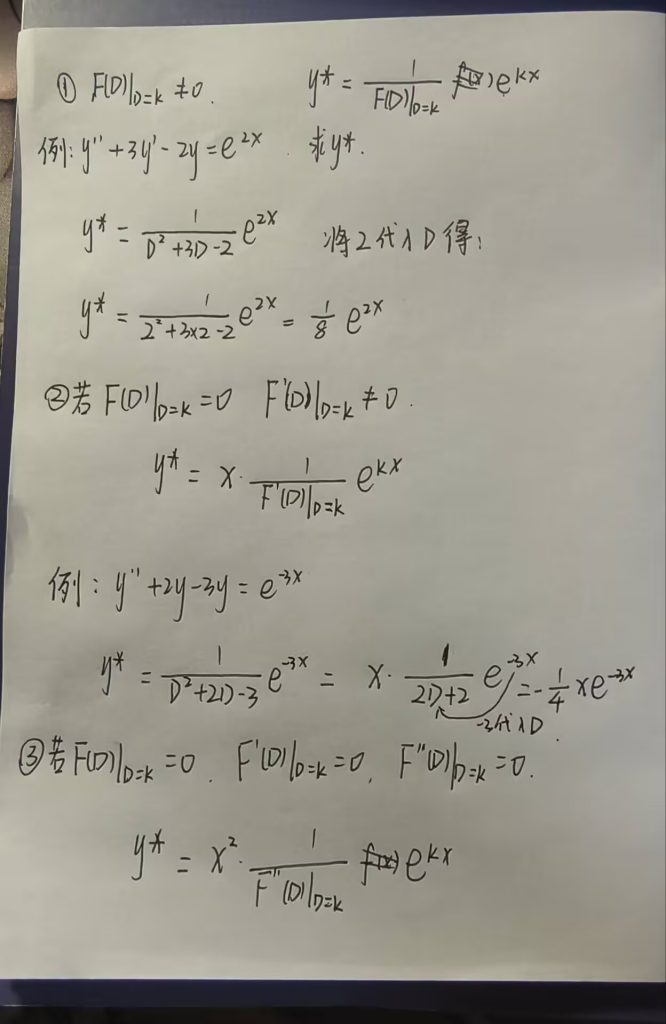 ① F(D)|D=k ≠0. y* = 1/F(D)|D=k e^kx
例: y''+3y'-2y=e^2x. 求y*.
y* = 1/(D²+3D-2) e^2x 将2代入D得:
y* = 1/(2²+3×2-2) e^2x = 1/8 e^2x
②若 F(D)|D=k =0 F'(D)|D=k ≠0.
y* = x· 1/F'(D)|D=k e^kx
例: y''+2y-3y=e^-3x
y* = 1/(D²+2D-3) e^-3x = x· 1/(2D+2) e^-3x = -1/4 xe^-3x
-3代入D.
③若F(D)|D=k =0. F'(D)|D=k =0. F''(D)|D=k =0.
y* = x²· 1/F''(D)|D=k e^kx